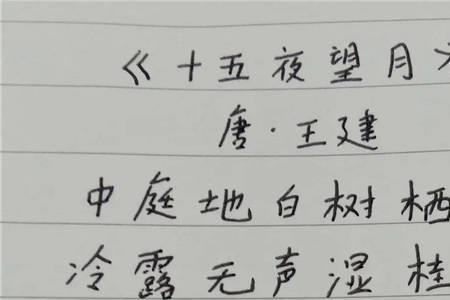 《十五夜望月》
唐·王建
中庭地白树栖
冷露无声湿桂